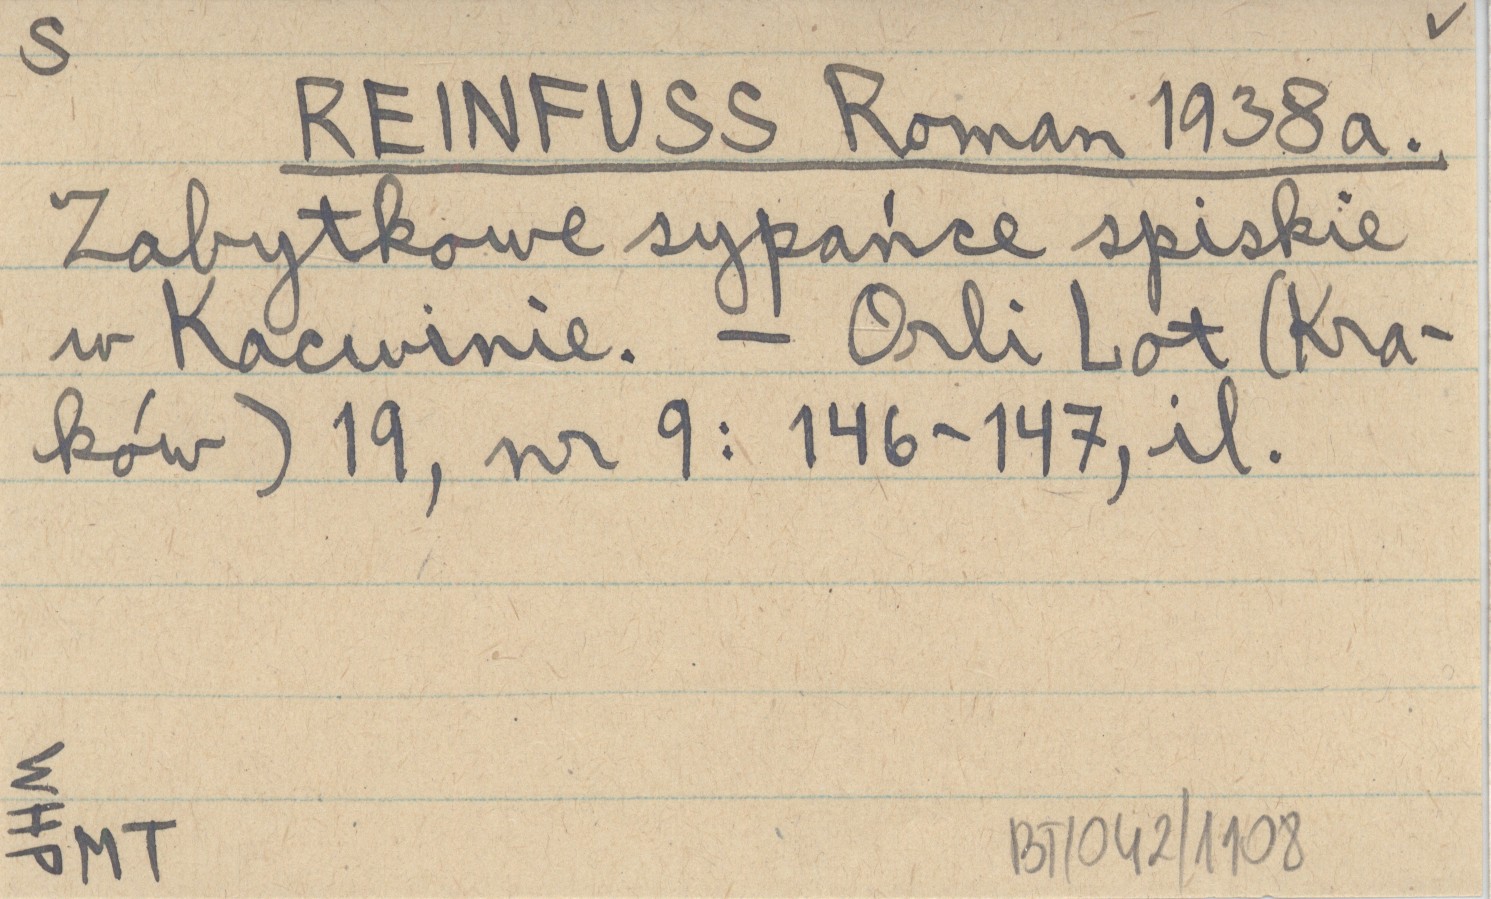 S ✓
REINFUSS Roman 1938a.
Zabytkowe sypańce spiskie
w Kacwinie. – Orli Lot (Kra-
ków) 19, nr 9: 146-147, il.
WHP
MT
BT/042/1108